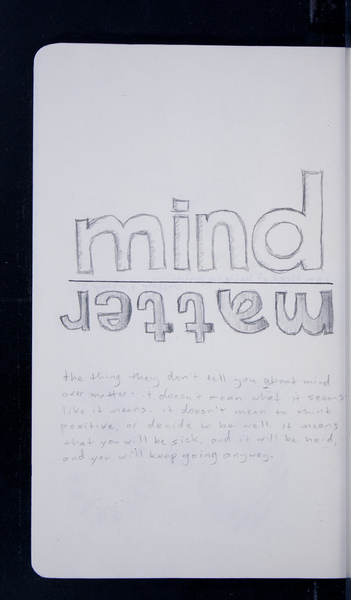 mind
matter
the thing they don't tell you about mind
over matter - it doesn't mean what it seems
like it means. it doesn't mean to think
positive, or decide to be well. it means
that you will be sick, and it will be hard,
and you will keep going anyway.